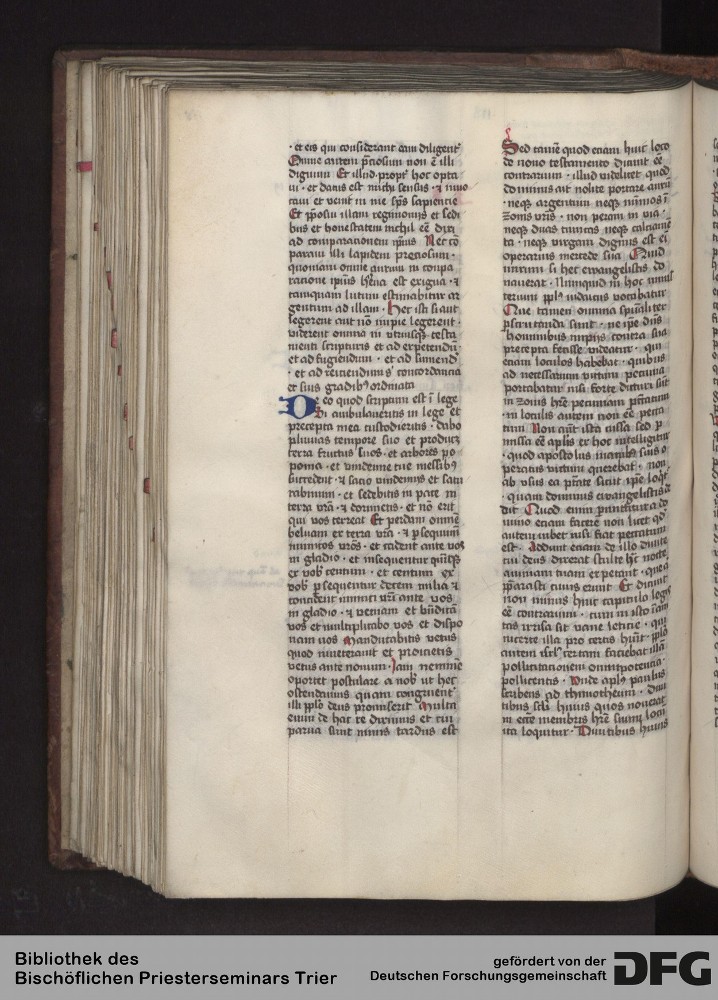 · et eis qui considerant cum diligent
Omne autem p̄ciosum non ē illi
dignum Et illud · propt̄ hoc opta
ui · et datus est michi sensus · ⁊ inuo
caui et venit in me sp̄s sapiencie
Et p̄posui illam regnionis et sedi
bus et honestatem nichil eē dixi
ad comparationem ip̄ius Nec cō
paraui illi lapidem preciosum ·
quoniam omne aurum in conpa
racione ip̄ius hēna est exigua · ⁊
tamquam lutum estimabitur ar
gentum ad illam · Hec isti si aut
legerent aut nō inpie legerent ·
viderent omnia in vtriusq̄ testa
menti scripturis et ad expetendū
et ad fugiendum · et ad sumend
· et ad reiciendum concordancia
et suis gradibꝫ ordinata
De eo quod scriptum est ī lege
Si ambulaueritis in lege et
precepta mea custodieritis · dabo
pluuias tempore suo et producꝫ
terra fructus suos · et arbores po
poma · et vindemie tue messibꝫ
succedent · ⁊ sacio vindemijs et satu
rabimini · et sedebitis in pace in
terra vr̄a · ⁊ dormietis · et nō erit
qui vos terreat Et perdam omnē
beluam ex terra vr̄a · ⁊ p̄sequimi
inimicos vr̄os · et cadent ante vos
in gladio · et insequentur quīqꝫ
ex vob̄ centum · et centum ex
vob̄ p̄sequentur decem milia ⁊
concident inimici vr̄i ante vos
in gladio · ⁊ veniam et bn̄dicā
vos et multiplicabo vos et dispo
nam vos Manducabitis vetus
quod inueterauit et proicietis
vetus ante nouum · Jam neminē
oportet postulare a nob̄ ut hec
ostendamus quam congruent
illi pp̄lo deus promiserit Multa
enim de hac re diximus et cui
parua sunt nimis tardus est
Sed tamē quod etiam huic loco
de nouo testamento dicunt eē
contrarium · illud videlicet quod
dominus ait nolite portare aurū
· neqꝫ argentum neqꝫ nūmos ī
zonis vr̄is · non peram in via ·
neqꝫ duas tunicas neqꝫ calciame
ta · neqꝫ virgam dignus est ei
operarius mercede sua Quid
mirum si hec ewangelistis do
nauerat · Numquid in hoc
terium pp̄ls iudaicus vocabatur
Que tamen omnia spūaliter
p̄scrutanda sunt · ne ip̄e dn̄s
hominibus inpijs contra sua
precepta fecisse videatur · qui
etiam loculos habebat · quibus
ad necessarium victum pecunia
portabatur nisi forte dicturi sūt
in zonis hr̄e pecuniam p̄ctatum
· in loculis autem non eē pecca
tum Non aūt ista iussa sed p̄
missa eē apl̄is ex hoc intelligitur
· quod apostolus manibꝫ suis o
peratus victum querebat · non
ab vsus ea p̄tate sicut ip̄e loqr̄
· quam dominus ewangelistis d
dit Quod enim precipitur a do
mino etiam facere non licet qd̄
autem iubet nisi fiat peccatum
est · Addunt etiam de illo diuite
cui deus dixerat stulte hc̄ nocte
animam tuam expetant · que
p̄parasti cuius erunt Et dicunt
non minus huic capitulo legis
eē contrarium · cum in isto
tas irrisa sit vane leticie · qui
incerte illa pro certis hūit · pp̄lo
autem isrl̄ certam faciebat illā
pollicitacionem omnipotencia
pollicentis · Vnde apl̄s paulus
scribens ad thimotheum · Diui
tibus scl̄i huius quos nouerat
in ecce membris hr̄e suum locū
ita loquitur · Diuitibus huius
Bibliothek des
Bischöflichen Priesterseminars Trier
gefördert von der
Deutschen Forschungsgemeinschaft
DFG